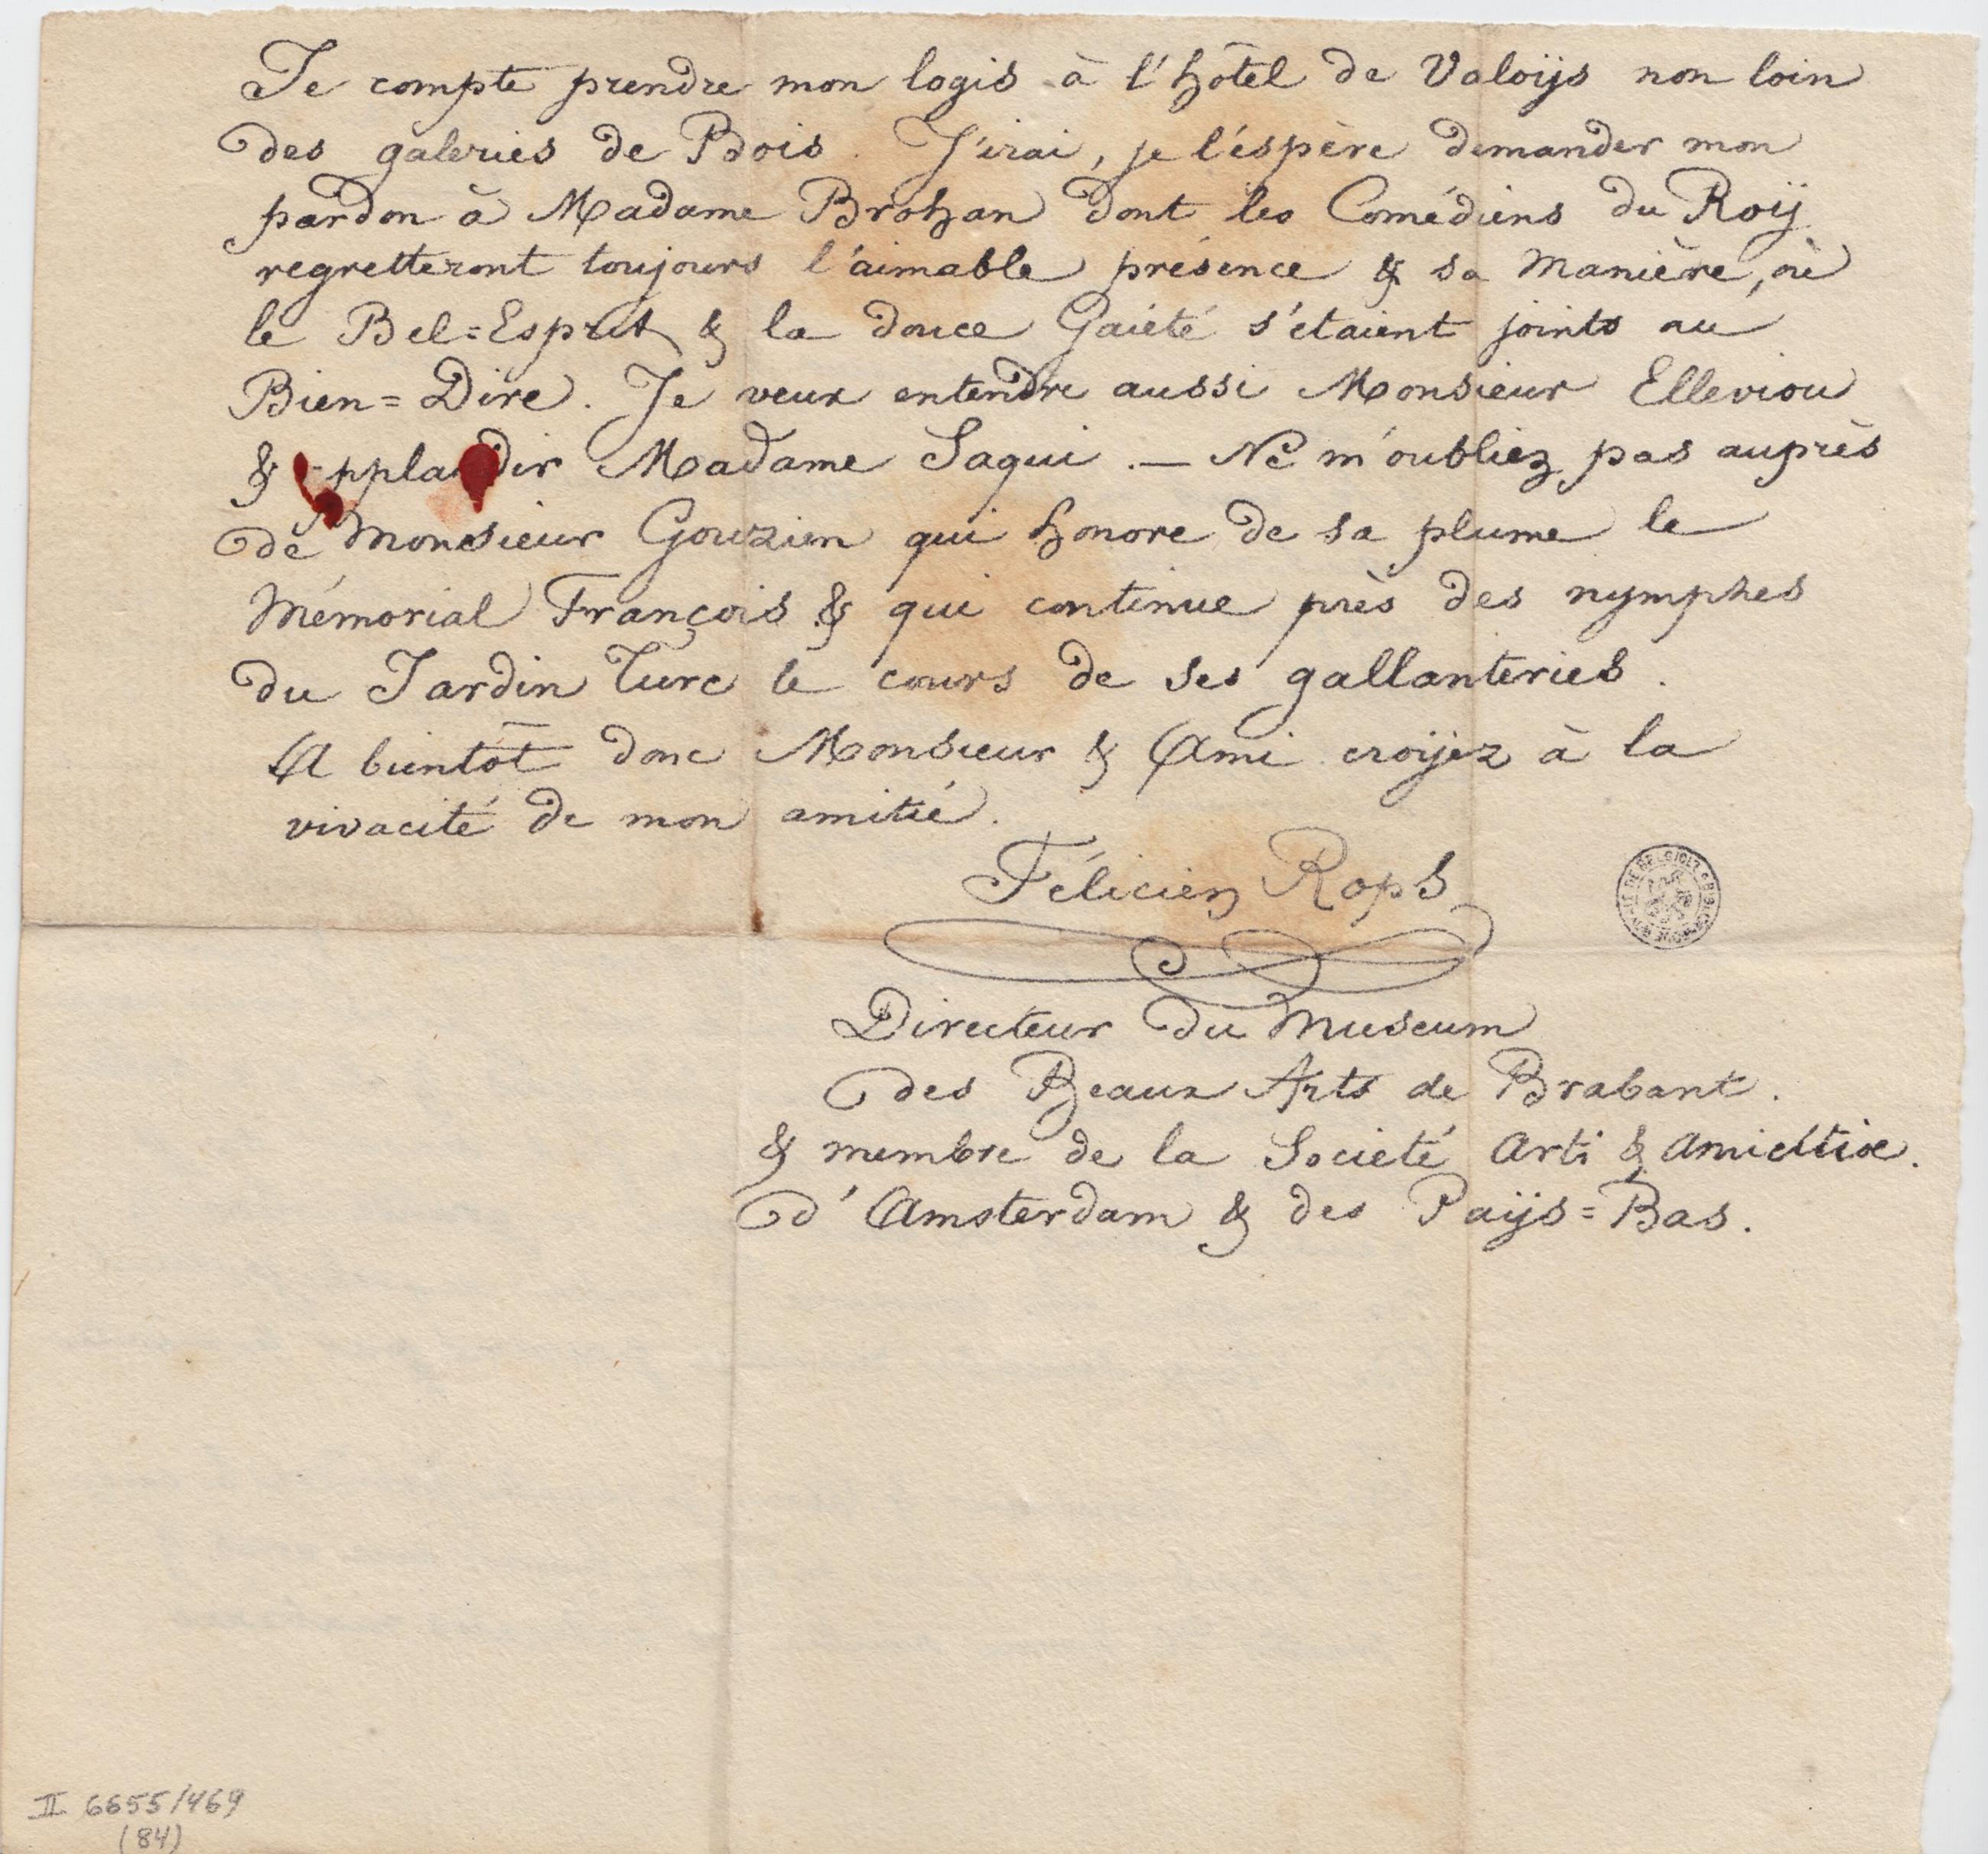 Je compte prendre mon logis à l'hôtel de Valoÿs non loin
des galeries de Bois. J'irai, je l'éspère demander mon
pardon à Madame Brohan dont les Comédiens du Roÿ
regretteront toujours l'aimable présence & sa Manière, où
le Bel=Esprit & la douce Gaiété s'étaient joints au
Bien=Dire. Je veux entendre aussi Monsieur Elleviou
& applaudir Madame Saqui. — Ne m'oubliez pas auprès
de Monsieur Gouzien qui honore de sa plume le
Mémorial François & qui continue près des nymphes
du Jardin Turc le cours de ses gallanteries.
A bientôt donc Monsieur & Ami croÿez à la
vivacité de mon amitié.
Félicien Rops
Directeur du Museum
des Beaux Arts de Brabant.
& membre de la Société Arti & Amicitiæ.
d'Amsterdam & des Paÿs=Bas.
II 6655/469
(84)